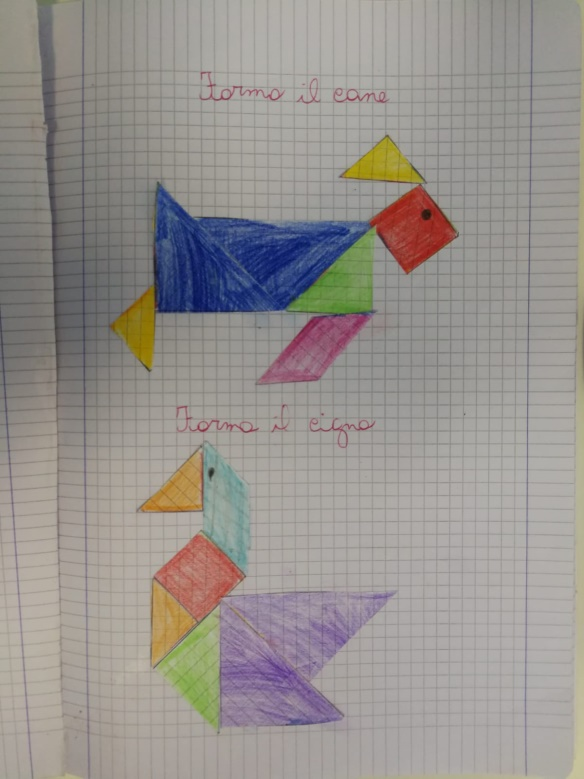 Formo il cane
Formo il cigno